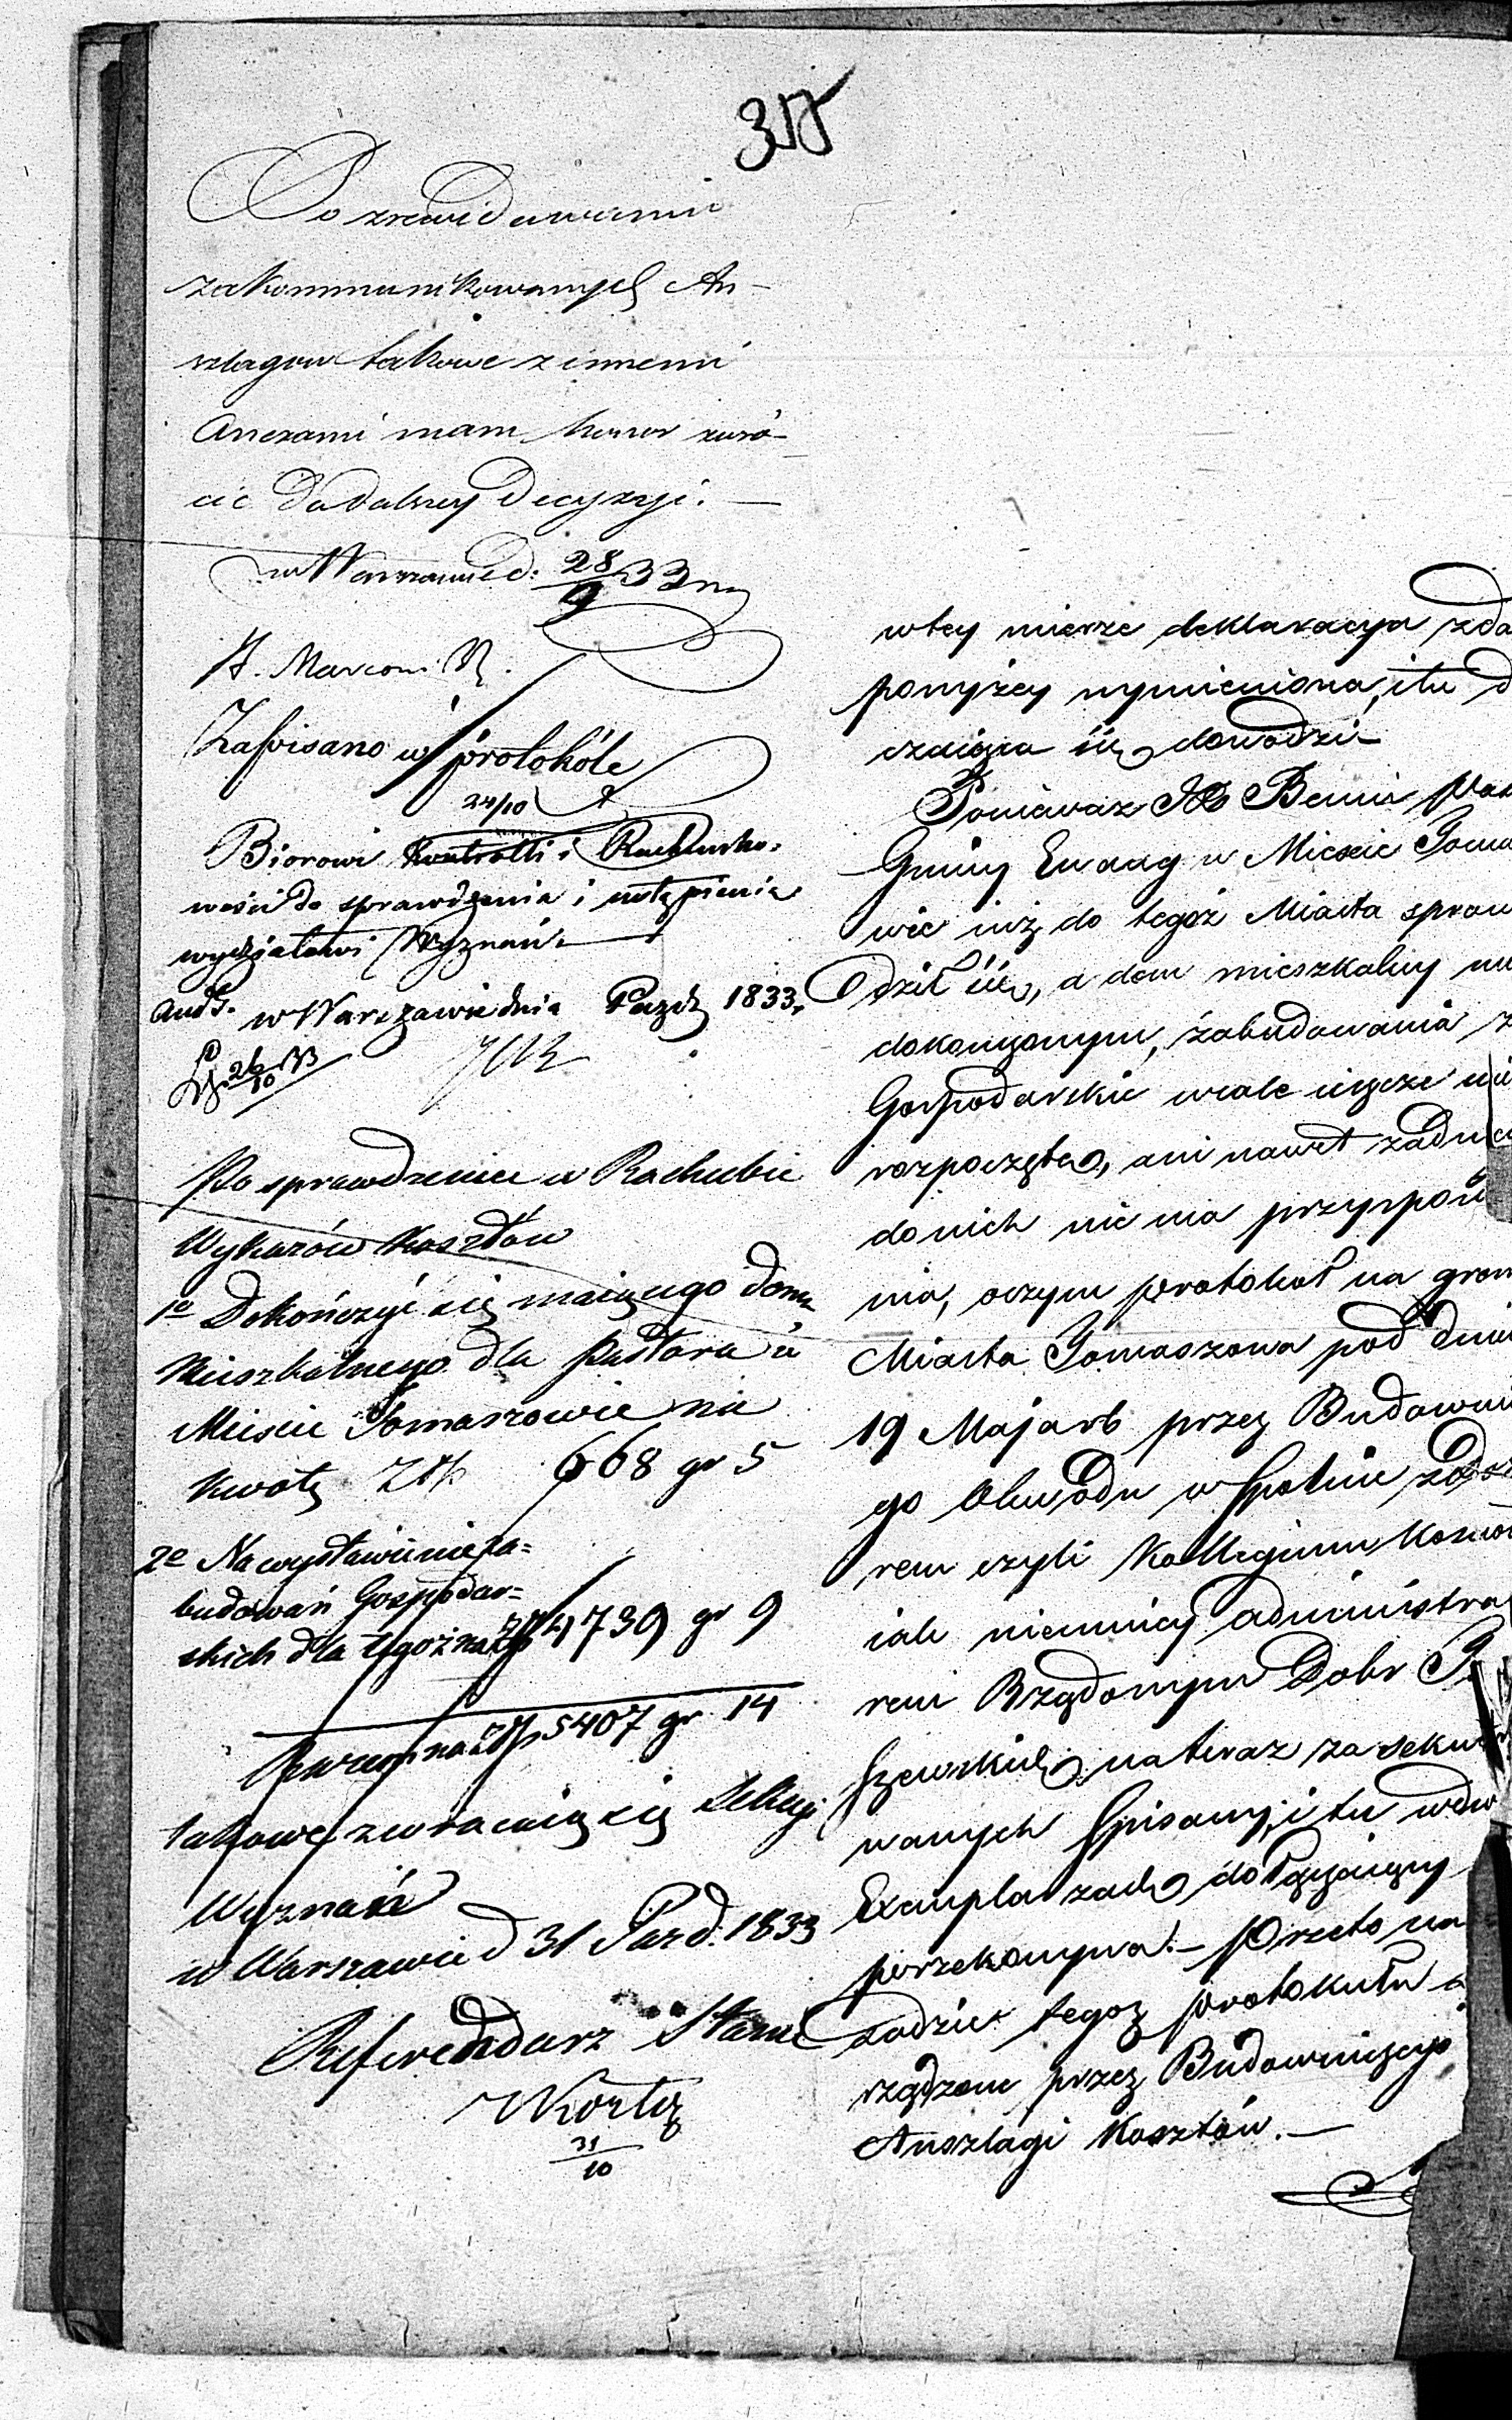 Po zrewidowaniu
zakommunikowanych An-
szlagow takowe z innemi
Anexami mam honor zwró-
cic do dalszey Decyzyi. —
w Warszawie d: 28/9 33
H. Marconi
Zapisano w protokóle
24/10
Biorowi Kontrolli i Rachunko-
wości do sprawdzenia i ustąpienia
wydziałowi Wyznań. —
w Warszawie dnia Pazdz 1833.
26/10 33
Po sprawdzeniu w Rachubie
Wykazów kosztów
1o Dokończyć się maiącego domu
Mieszkalnego dla Pastora w
Mieście Tomaszowie na
kwotę Złp 668 gr 5
2o Na wystawienie za=
budowań Gospodar=
skich dla tegoż na Złp 4739 gr 9
Razem na Złp 5407 gr 14
takowe zwracaią się Sekcyi
Wyznań
w Warszawie d 31 Pazd. 1833
Referendarz Stanu
31/10
w tey mierze deklaracya zda
ponyżey wymieniona, i tu d
czaiąca się dowodzi —
Ponieważ Benni
Gminy Ewang w Mieście Toma
wie iuż do tegoż Miasta sprow
dził się, a dom mieszkalny
dokonczonym, zabudowania z
Gospodarskie wcale ieszcze nie
rozpoczęte, ani nawet żadne
do nich nie ma przysposo
nia, oczym protokoł na gron
Miasta Tomaszowa pod dniem
19 Maja rb przez Budowni
go Obwodu wspolnie z
rem czyli Kollegium Kosciel
iako niemniey administra
rem Rządowym Dobr
szewskich na teraz za sekwe
wanych spisany, i tu w dw
Exemplarzach dołączaiący
przekonywa. — Przeto na
zadzie tegoż protokułu s
rządzone przez Budowniczego
Anszlagi Kosztów. —